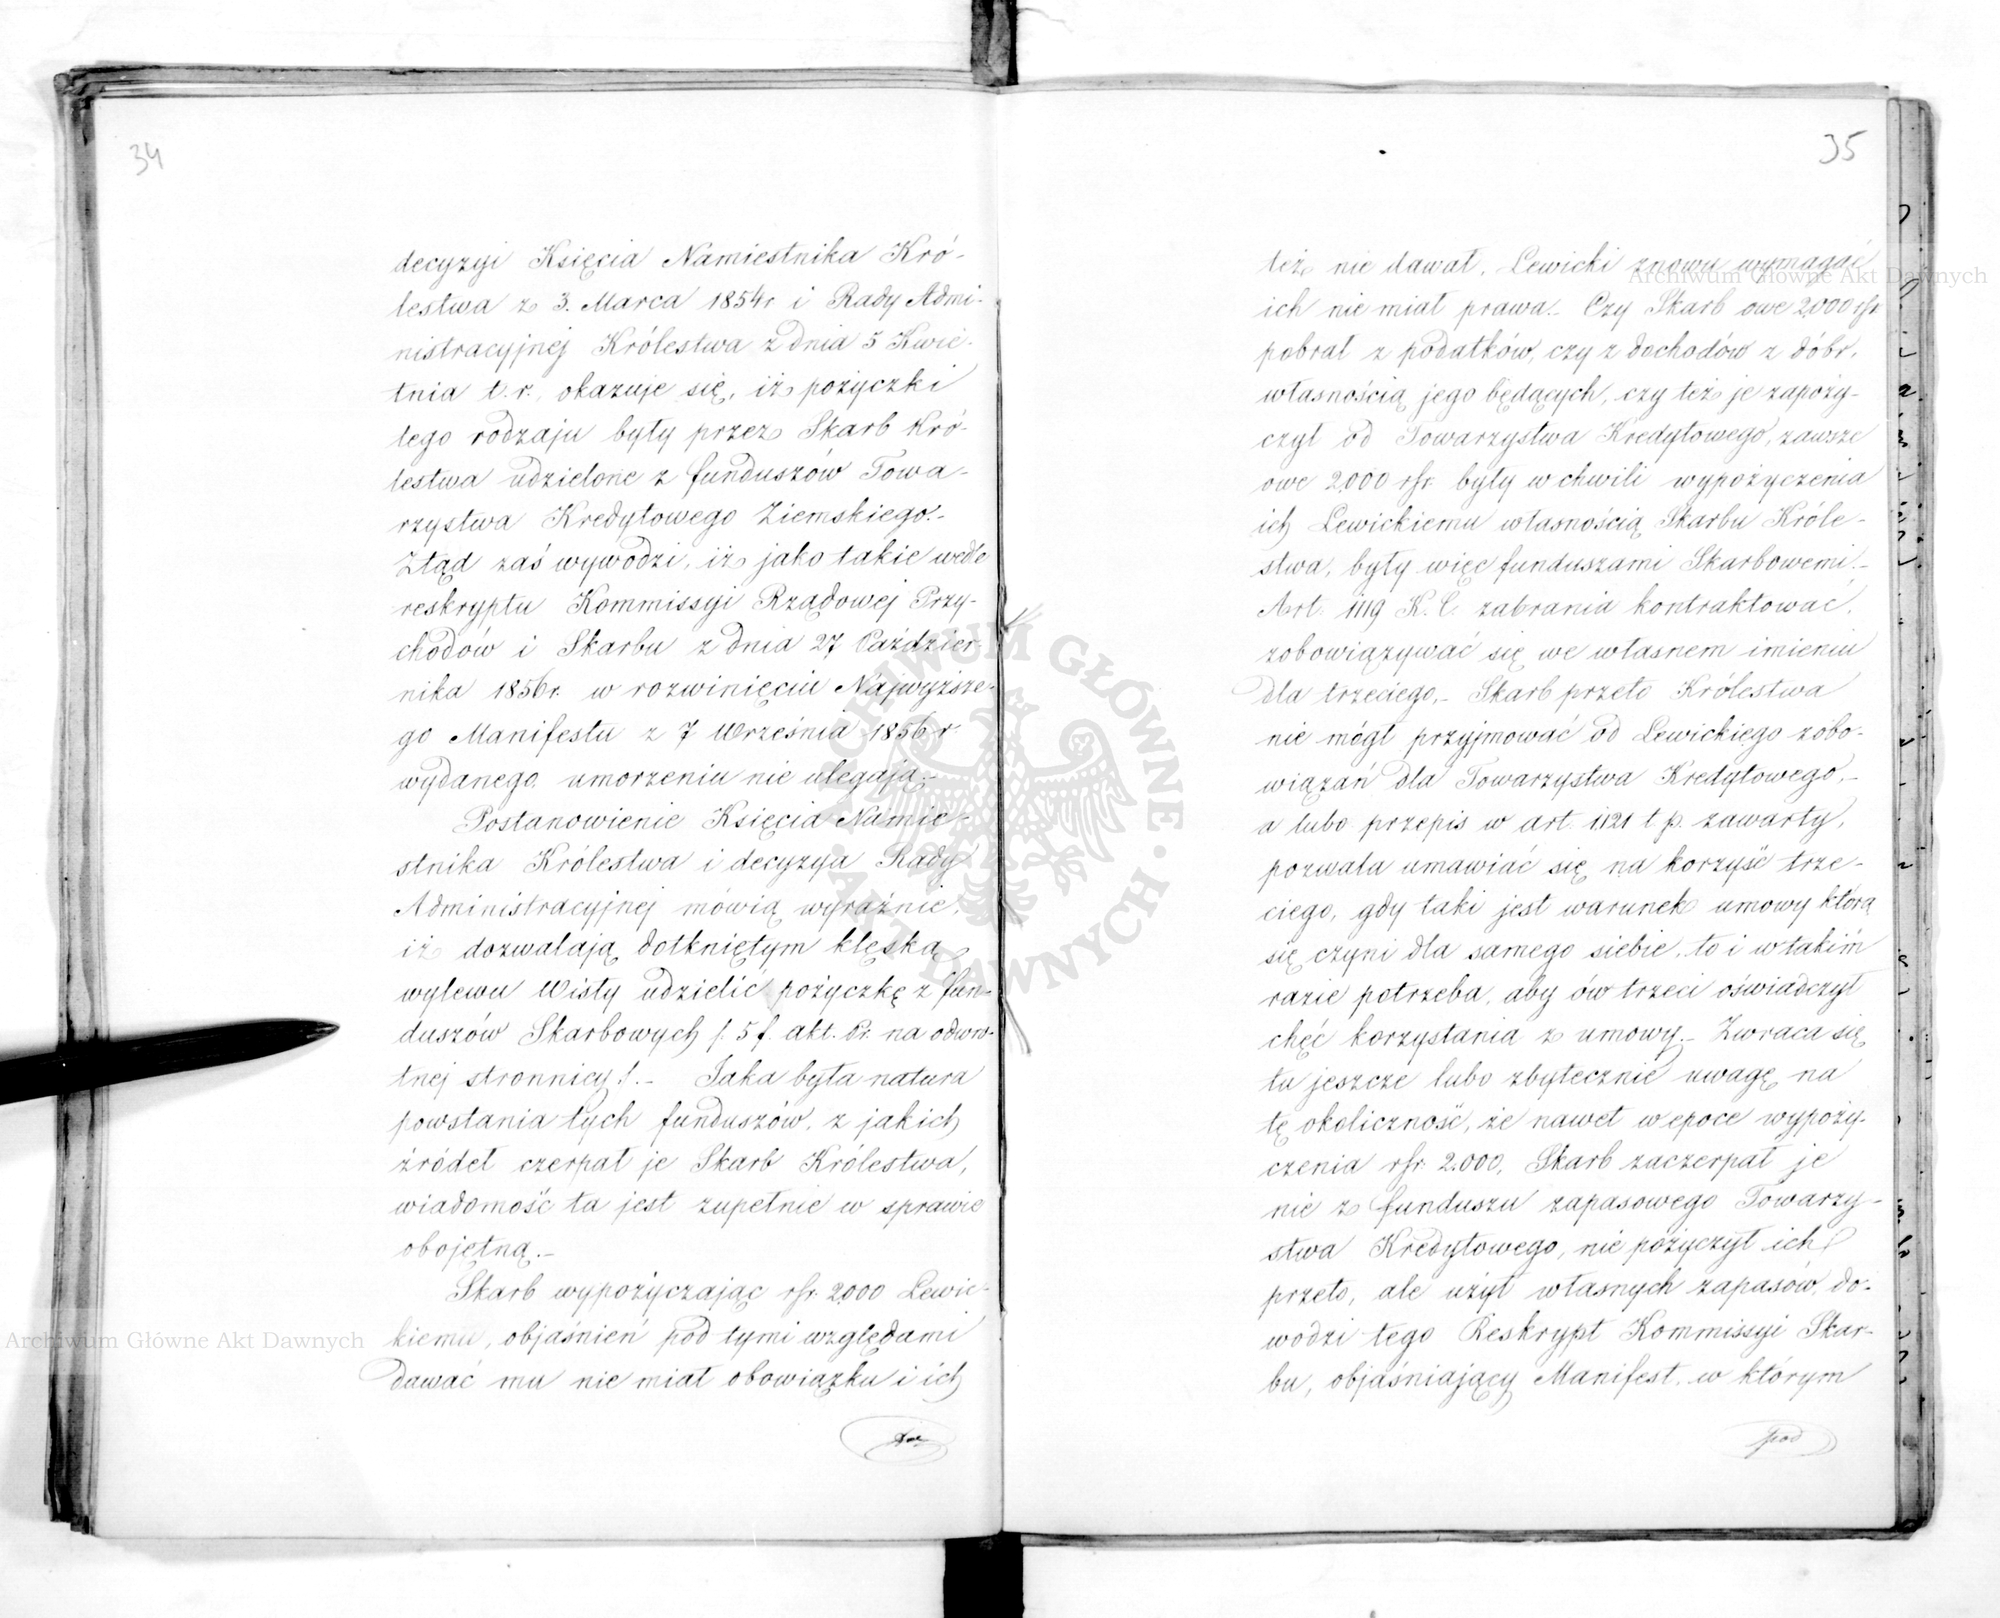 34
decyzyi Księcia Namiestnika Kró-
lestwa z 3. Marca 1854r i Rady Admi-
nistracyjnej Królestwa z dnia 5 Kwie-
tnia t.r., okazuje się, iż pożyczki
tego rodzaju były przez Skarb Kró-
lestwa udzielone z funduszów Towa-
rzystwa Kredytowego Ziemskiego.-
Ztąd zaś wywodzi, iż jako takie wedle
reskryptu Kommissyi Rządowej Przy-
chodów i Skarbu z dnia 27 Paździer-
nika 1856r. w rozwinięciu Najwyższe-
go Manifestu z 7 Września 1856 r
wydanego umorzeniu nie ulegają.-
Postanowienie Księcia Namie-
stnika Królestwa i decyzya Rady
Administracyjnej mówią wyraźnie,
iż dozwalają dotkniętym klęską
wylewu Wisły udzielić pożyczkę z fun-
duszów Skarbowych /. 5 f. akt. Pr. na odwro-
tnej stronnicy /.- Jaka była natura
powstania tych funduszów, z jakich
źródeł czerpał je Skarb Królestwa,
wiadomość ta jest zupełnie w sprawie
obojętną.-
Skarb wypożyczając rsr. 2000 Lewic-
kiemu, objaśnień pod tymi względami
dawać mu nie miał obowiązku i ich
35
też nie dawał, Lewicki znowu wymagać
ich nie miał prawa.- Czy Skarb owe 2,000 rsr.
pobrał z podatków, czy z dochodów z dóbr,
własnością jego będących, czy też je zapoży-
czył od Towarzystwa Kredytowego, zawsze
owe 2000 rsr. były w chwili wypożyczenia
ich Lewickiemu własnością Skarbu Króle-
stwa, były więc funduszami Skarbowemi.-
Art. 1119 K. C. zabrania kontraktować,
zobowiązywać się we własnem imieniu
dla trzeciego,- Skarb przeto Królestwa
nie mógł przyjmować od Lewickiego zobo-
wiązań dla Towarzystwa Kredytowego,-
a lubo przepis w art. 1121 t p. zawarty,
pozwala umawiać się na korzyść trze-
ciego, gdy taki jest warunek umowy którą
się czyni dla samego siebie, to i w takim
razie potrzeba, aby ów trzeci oświadczył
chęć korzystania z umowy.- Zwraca się
tu jeszcze lubo zbytecznie uwagę na
tę okoliczność, że nawet w epoce wypoży-
czenia rsr. 2.000, Skarb zaczerpał je
nie z funduszu zapasowego Towarzy-
stwa Kredytowego, nie pożyczył ich
przeto, ale użył własnych zapasów, do-
wodzi tego Reskrypt Kommissyi Skar-
bu, objaśniający Manifest, w którym
pod
Archiwum Główne Akt Dawnych
Archiwum Główne Akt Dawnych
ARCHIWUM GŁÓWNE · AKT DAWNYCH ·